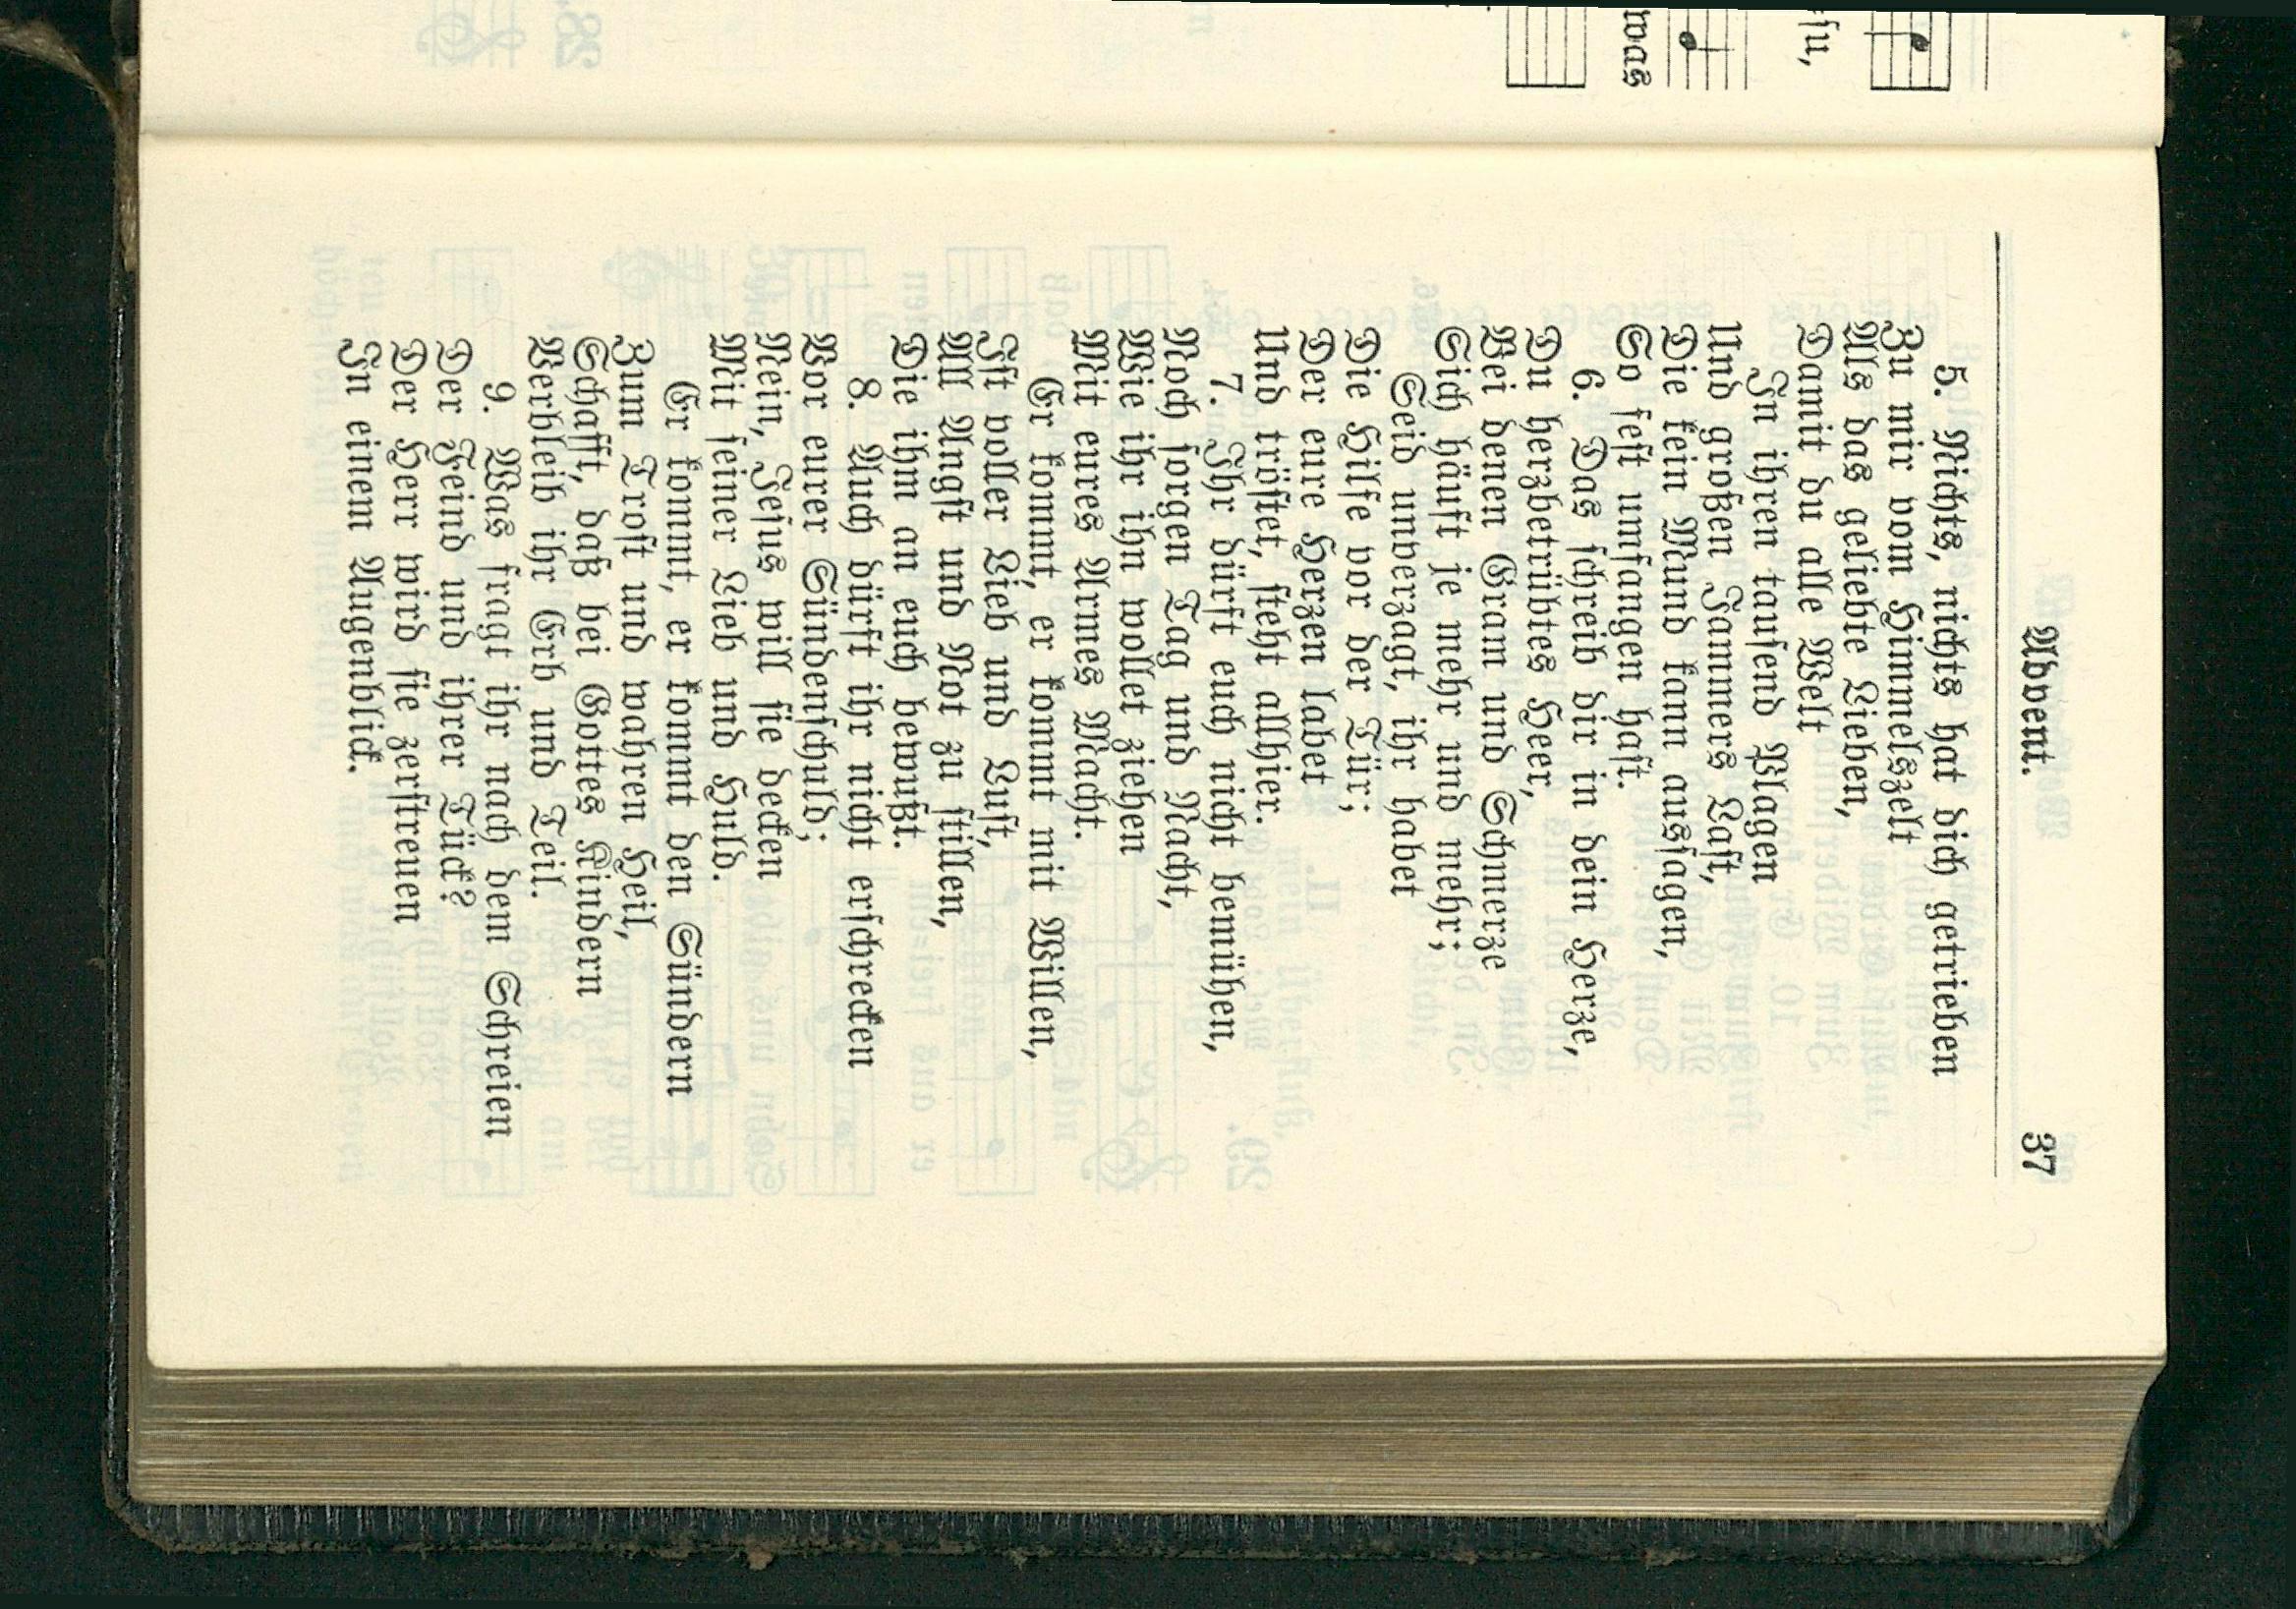 ſu,
was
Advent. 37
5. Nichts, nichts hat dich getrieben
Zu mir vom Himmelszelt
Als das geliebte Lieben,
Damit du alle Welt
In ihren tauſend Plagen
Und großen Jammers Laſt,
Die kein Mund kann ausſagen,
So feſt umfangen haſt.
6. Das ſchreib dir in dein Herze,
Du herzbetrübtes Heer,
Bei denen Gram und Schmerze
Sich häuft je mehr und mehr;
Seid unverzagt, ihr habet
Die Hilfe vor der Tür;
Der eure Herzen labet
Und tröſtet, ſteht allhier.
7. Ihr dürft euch nicht bemühen,
Noch ſorgen Tag und Nacht,
Wie ihr ihn wollet ziehen
Mit eures Armes Macht.
Er kommt, er kommt mit Willen,
Iſt voller Lieb und Luſt,
All Angſt und Not zu ſtillen,
Die ihm an euch bewußt.
8. Auch dürft ihr nicht erſchrecken
Vor eurer Sündenſchuld;
Nein, Jeſus will ſie decken
Mit ſeiner Lieb und Huld.
Er kommt, er kommt den Sündern
Zum Troſt und wahren Heil,
Schafft, daß bei Gottes Kindern
Verbleib ihr Erb und Teil.
9. Was fragt ihr nach dem Schreien
Der Feind und ihrer Tück?
Der Herr wird ſie zerſtreuen
In einem Augenblick.